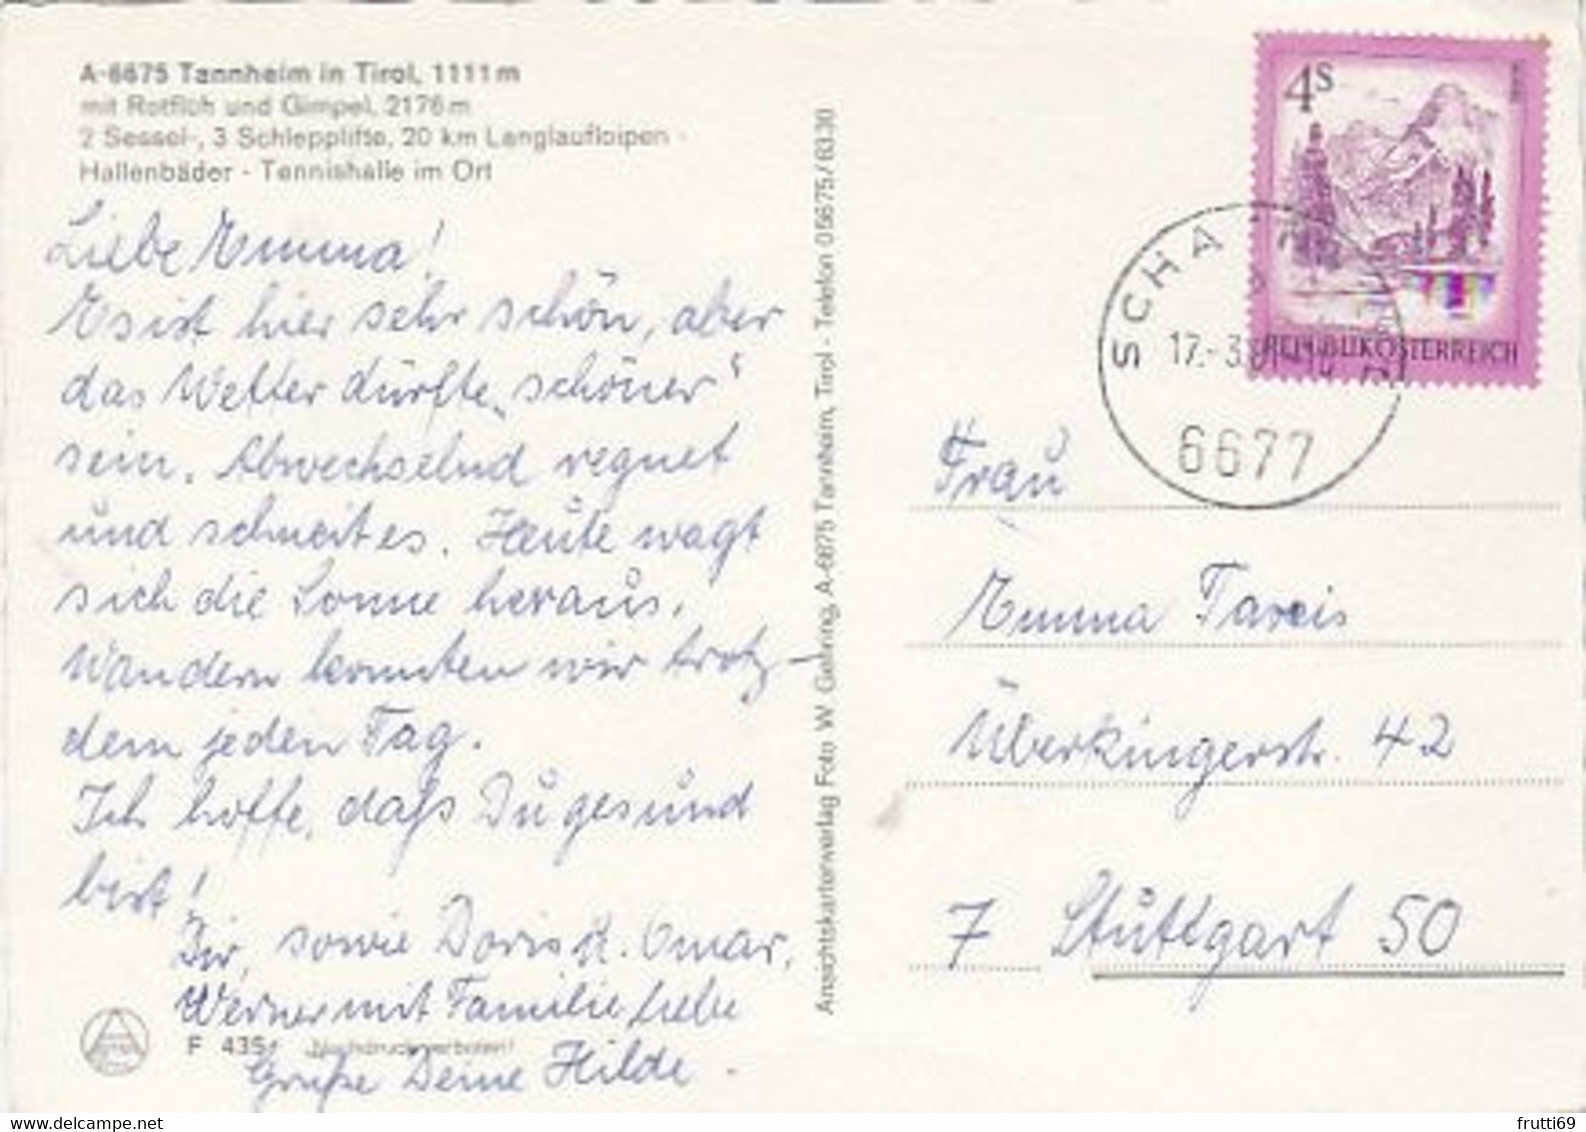 A-6675 Tannheim in Tirol, 1111 m
mit Rotflüh und Gimpel, 2176 m
2 Sessel-, 3 Schlepplifte, 20 km Langlaufloipen -
Hallenbäder - Tennishalle im Ort
Liebe Emma!
Es ist hier sehr schön, aber
das Wetter dürfte „schöner“
sein. Abwechselnd regnet
und schneit es. Heute wagt
sich die Sonne heraus.
Wandern konnten wir trotz-
dem jeden Tag.
Ich hoffe, daß Du gesund
bist!
Dir, sowie Doris u. Omar,
Werner mit Familie liebe
Grüße Deine Hilde.
F 435 Nachdruck verboten!
Ansichtskartenverlag Foto W. Gehring, A-6675 Tannheim, Tirol - Telefon 05675/6330
4 S
REPUBLIK ÖSTERREICH
SCHA
17.-3.
6677
Frau
Emma Tareis
Überkingerstr. 42
7 Stuttgart 50
www.delcampe.net
frutti69